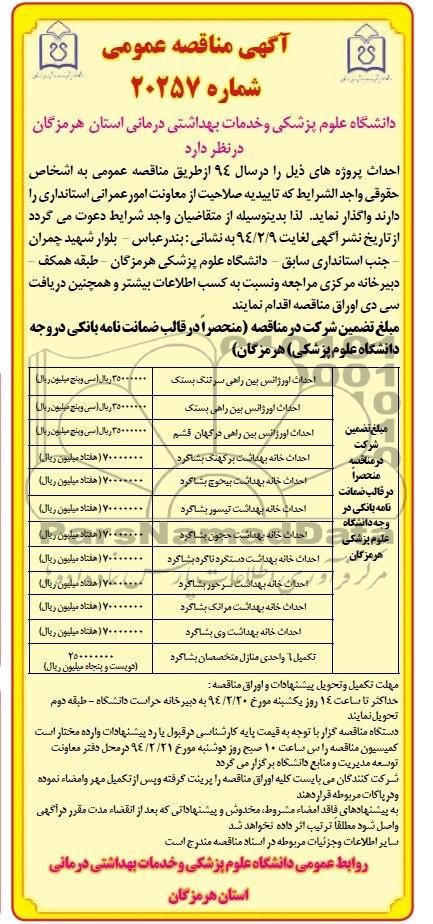 آگهی مناقصه عمومی
شماره ۲۰۲۵۷
دانشگاه علوم پزشکی وخدمات بهداشتی درمانی استان هرمزگان
درنظر دارد
احداث پروژه های ذیل را درسال ۹۴ ازطریق مناقصه عمومی به اشخاص
حقوقی واجد الشرایط که تاییدیه صلاحیت از معاونت امورعمرانی استانداری را
دارند واگذار نماید. لذا بدینوسیله از متقاضیان واجد شرایط دعوت می گردد
ازتاریخ نشر آگهی لغایت ۹۴/۲/۹ به نشانی: بندرعباس – بلوار شهید چمران
– جنب استانداری سابق – دانشگاه علوم پزشکی هرمزگان – طبقه همکف –
دبیرخانه مرکزی مراجعه ونسبت به کسب اطلاعات بیشتر و همچنین دریافت
سی دی اوراق مناقصه اقدام نمایند
مبلغ تضمین شرکت در مناقصه (منحصراً در قالب ضمانت نامه بانکی در وجه
دانشگاه علوم پزشکی) هرمزگان)
مبلغ تضمین
شرکت
درمناقصه
منحصراً
در قالب ضمانت
نامه بانکی در
وجه دانشگاه
علوم پزشکی
هرمزگان
احداث اورژانس بین راهی سرتنگ بستک ۳۵۰۰۰۰۰۰ ریال (سی وپنج میلیون ریال)
احداث اورژانس بین راهی بستک ۳۵۰۰۰۰۰۰ ریال (سی وپنج میلیون ریال)
احداث اورژانس بین راهی درکهان قشم ۳۵۰۰۰۰۰۰ ریال (سی وپنج میلیون ریال)
احداث خانه بهداشت برکهنگ بشاگرد ۷۰۰۰۰۰۰۰ (هفتاد میلیون ریال)
احداث خانه بهداشت بیحوچ بشاگرد ۷۰۰۰۰۰۰۰ (هفتاد میلیون ریال)
احداث خانه بهداشت تیسور بشاگرد ۷۰۰۰۰۰۰۰ (هفتاد میلیون ریال)
احداث خانه بهداشت حجون بشاگرد ۷۰۰۰۰۰۰۰ (هفتاد میلیون ریال)
احداث خانه بهداشت دستگرد ناگرد بشاگرد ۷۰۰۰۰۰۰۰ (هفتاد میلیون ریال)
احداث خانه بهداشت سرخور بشاگرد ۷۰۰۰۰۰۰۰ (هفتاد میلیون ریال)
احداث خانه بهداشت مرانک بشاگرد ۷۰۰۰۰۰۰۰ (هفتاد میلیون ریال)
احداث خانه بهداشت وی بشاگرد ۷۰۰۰۰۰۰۰ (هفتاد میلیون ریال)
تکمیل ٦ واحدی منازل متخصصان بشاگرد ۲۵۰۰۰۰۰۰۰
(دویست و پنجاه میلیون ریال)
ParsNamadData
مهلت تکمیل وتحویل پیشنهادات و اوراق مناقصه :
حداکثر تا ساعت ۱۴ روز یکشنبه مورخ ۹۴/۲/۲۰ به دبیرخانه حراست دانشگاه – طبقه دوم
تحویل نمایند
دستگاه مناقصه گزار با توجه به قیمت پایه کارشناسی درقبول یا رد پیشنهادات وارده مختار است
کمیسیون مناقصه راس ساعت ۱۰ صبح روز دوشنبه مورخ ۹۴/۲/۲۱ درمحل دفتر معاونت
توسعه مدیریت و منابع دانشگاه برگزار می گردد
شرکت کنندگان می بایست کلیه اوراق مناقصه را پرینت گرفته وپس ازتکمیل مهر وامضاء نموده
ودرپاکات مربوطه قراردهند
به پیشنهادهای فاقد امضاء مشروط، مخدوش و پیشنهاداتی که بعد از انقضاء مدت مقرر درآگهی
واصل شود مطلقاً ترتیب اثر داده نخواهد شد
سایر اطلاعات وجزئیات مربوطه در اسناد مناقصه مندرج است
روابط عمومی دانشگاه علوم پزشکی وخدمات بهداشتی درمانی
استان هرمزگان